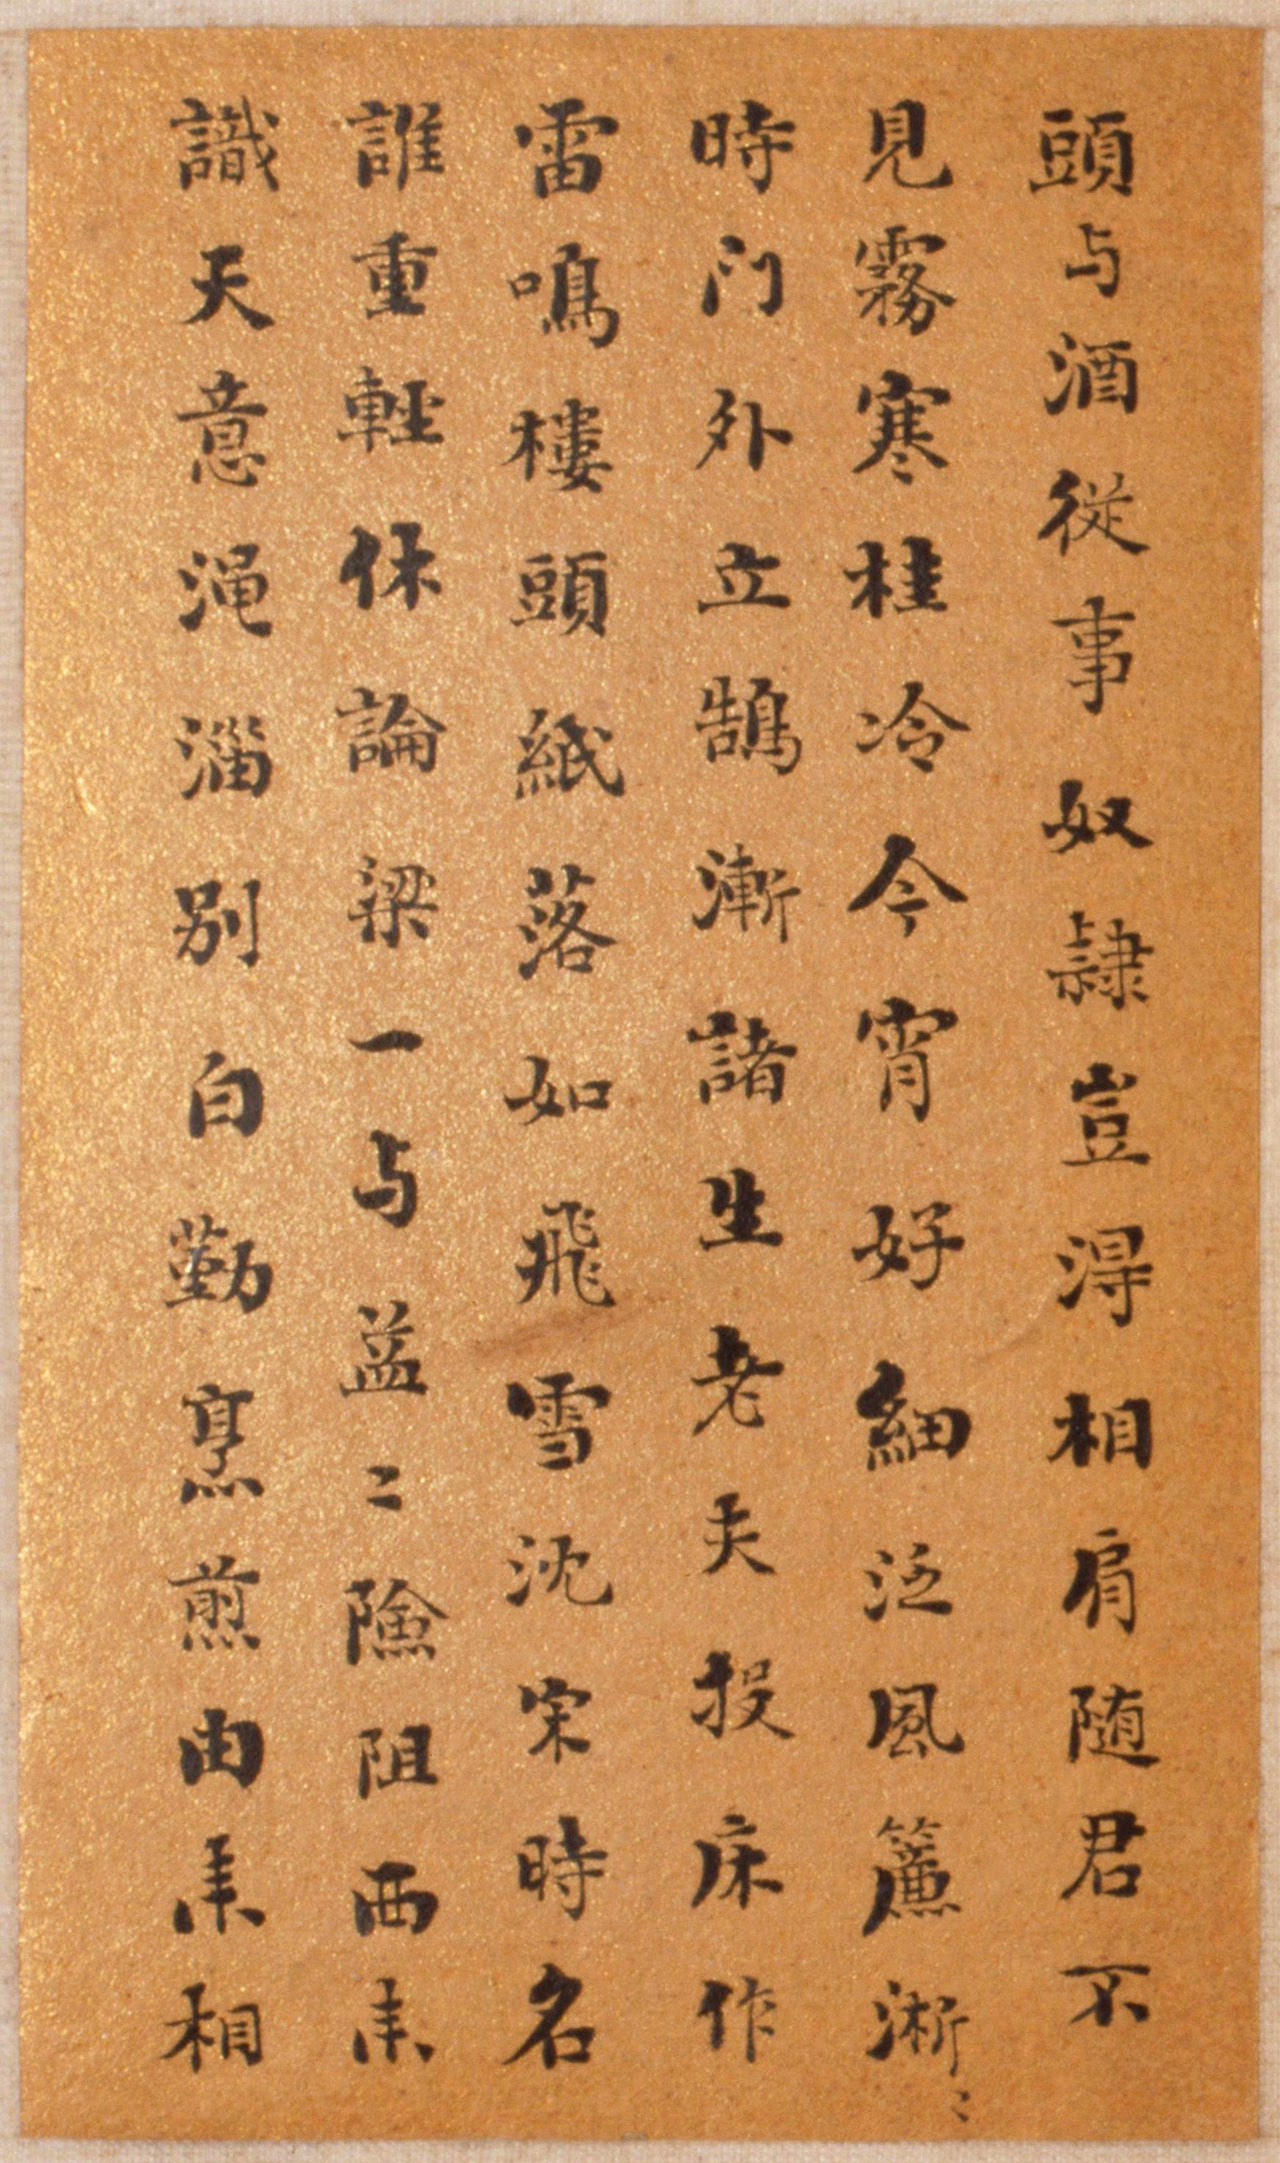 頭与酒從事奴隷豈淂相肩随君不
見霧寒桂冷今宵好細泛風簾淅〻
時门外立鵠漸諸生老夫投床作
雷鳴樓頭紙落如飛雪沈宋時名
誰重輕休論梁一与益〻險阻西来
識天意渑淄别白勤烹煎由来相